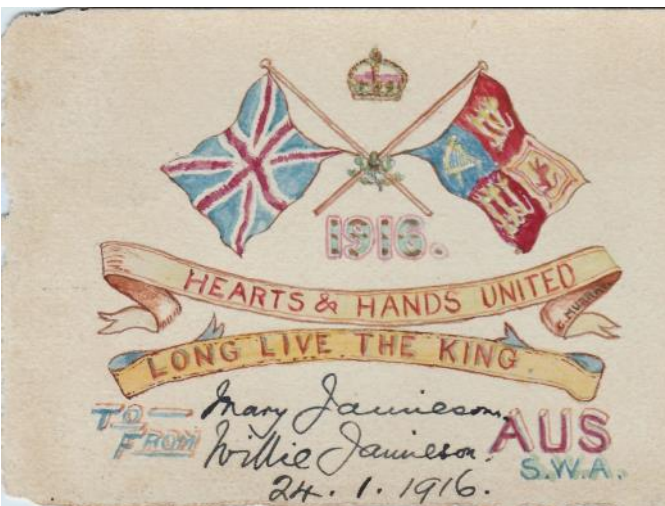 1916.
HEARTS & HANDS UNITED
C. MURRAY
LONG LIVE THE KING
TO — Mary Jamieson.
FROM Willie Jamieson.
AUS
S.W.A.
24. 1. 1916.